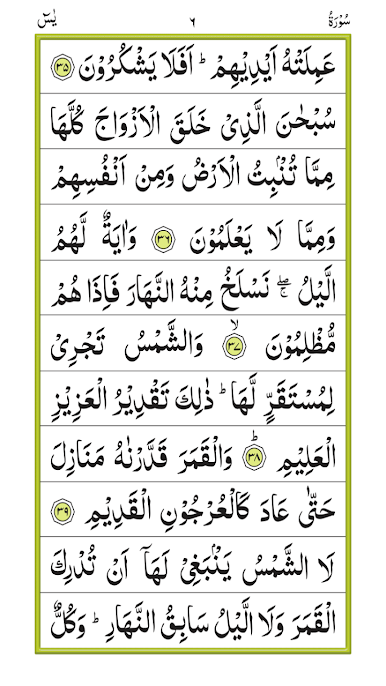 سُوْرَةُ ٦ يٰسٓ
عَمِلَتْهُ اَيْدِيْهِمْ ؕ اَفَلَا يَشْكُرُوْنَ ﴿۳۵﴾
سُبْحٰنَ الَّذِیْ خَلَقَ الْاَزْوَاجَ كُلَّهَا
مِمَّا تُنْۢبِتُ الْاَرْضُ وَمِنْ اَنْفُسِهِمْ
وَمِمَّا لَا يَعْلَمُوْنَ ﴿۳۶﴾ وَاٰيَةٌ لَّهُمُ
الَّيْلُ ۖۚ نَسْلَخُ مِنْهُ النَّهَارَ فَاِذَا هُمْ
مُّظْلِمُوْنَ ۙ﴿۳۷﴾ وَالشَّمْسُ تَجْرِیْ
لِمُسْتَقَرٍّ لَّهَا ؕ ذٰلِكَ تَقْدِيْرُ الْعَزِيْزِ
الْعَلِيْمِ ؕ﴿۳۸﴾ وَالْقَمَرَ قَدَّرْنٰهُ مَنَازِلَ
حَتّٰى عَادَ كَالْعُرْجُوْنِ الْقَدِيْمِ ﴿۳۹﴾
لَا الشَّمْسُ يَنْۢبَغِیْ لَهَاۤ اَنْ تُدْرِكَ
الْقَمَرَ وَلَا الَّيْلُ سَابِقُ النَّهَارِ ؕ وَكُلٌّ